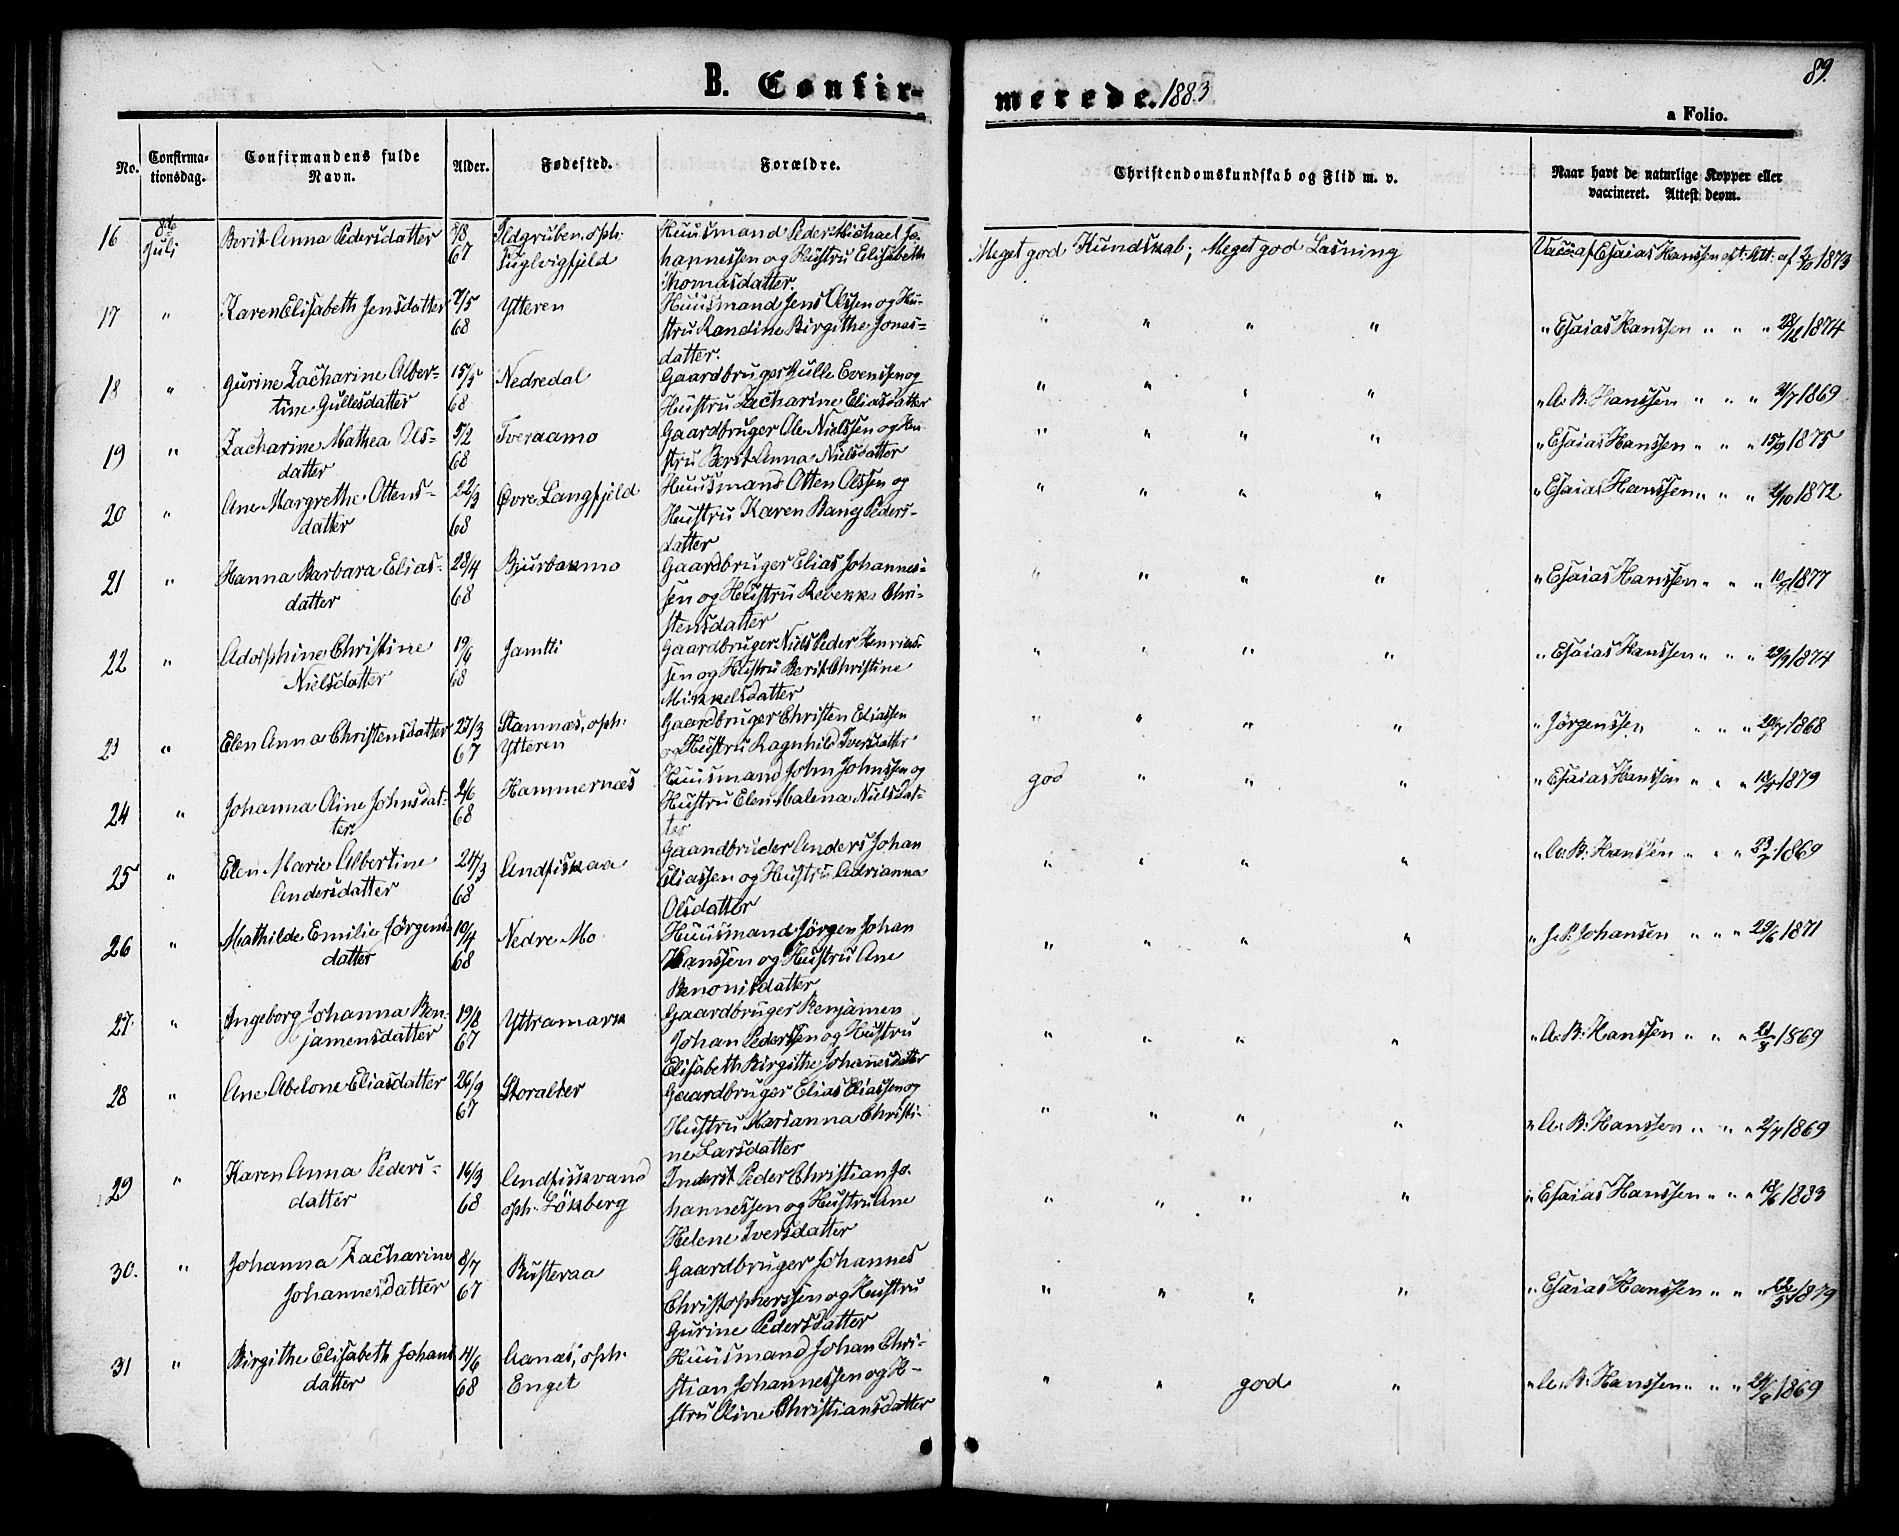 89.
B. Confir-
merede. 1883
a Folio.
No.
Confirma-
tionsdag.
Confirmandens fulde
Navn.
Alder.
Fødested.
Forældre.
Christendomskundskab og Flid m. v.
Naar havt de naturlige Kopper eller
vaccineret. Attest derom.
16 8de Juli Berit Anna Pedersdatter 2/8 67 Ildgruben, oph: Fuglvigfjeld
Huusmand Peder Michael Jo-
hannessen og Hustru Elisabeth
Thomasdatter.
Meget god Kundskab; Meget god Læsning
Vacc: af Esaias Hanssen elt: Att: af 2/10 1873
17 " Karen Elisabeth Jensdatter 7/5 68 Ytteren
Huusmand Jens Olssen og Hu-
stru Randine Birgithe Jonas-
datter.
" " " "
" Esaias Hanssen " " " 28/12 1874
18 " Gurine Zacharine Alber-
tine Gullesdatter 15/5 68 Nedredal
Gaardbruger Gulle Evenssen og
Hustru Zacharine Eliasdatter
" " " "
" A. B. Hanssen " " " /7 1869
19 " Zacharine Mathea Ols-
datter 5/2 68 Tveraamo
Gaardbruger Ole Nielssen og Hu-
stru Berit Anna Nielsdatter
" " " "
" Esaias Hanssen " " " 15/9 1875
20 " Ane Margrethe Ottens-
datter 22/3 68 Øvre Langfjeld
Huusmand Otten Olssen og
Hustru Karen Bang Peders-
datter
" " " "
" Esaias Hanssen " " " 2/10 1872
21 " Hanna Barbara Elias-
datter 28/4 68 Bjurbækmo
Gaardbruger Elias Johannes-
sen og Hustru Rebekka Chri-
stensdatter
" " " "
" Esaias Hanssen " " " 1877
22 " Adolphine Christine
Nielsdatter 19/6 68 Jamtli
Gaardbruger Niels Peder Henriks-
sen og Hustru Berit Christine
Mikkelsdatter
" " " "
" Esaias Hanssen " " " 29/9 1874
23 " Elen Anna Christensdatter 23/3 67 Stamnæs, oph: Ytteren
Gaardbruger Christen Eliassen
og Hustru Ragnhild Iversdatter
" " " "
" Jörgenssen " " " 20/7 1868
24 " Johanna Aline Johnsdat-
ter 2/6 68 Hammernæs
Huusmand John Johnssen og
Hustru Elen Malena Nielsdat-
ter
god " " "
" Esaias Hanssen " " " 1879
25 " Elen Marie Albertine
Andersdatter 24/3 68 Andfiskaa
Gaardbruder Anders Johan
Eliassen og Hustru Adrianna
Olsdatter
" " " "
" A. B. Hanssen " " " 23/7 1869
26 " Mathilde Emilie Jørgens-
datter 19/4 68 Nedre Mo
Huusmand Jørgen Johan
Hanssen og Hustru Ane
Benonisdatter
" " " "
" J. P. Johansen " " " 29/6 1871
27. " Ingeborg Johanna Ben-
jamensdatter 19/8 67 Yttramark
Gaardbruger Benjamen
Johan Pederssen og Hustru
Elisabeth Birgithe Johannesdatter
" " " "
" A. B. Hanssen " " " 21/8 1869
28 " Ane Abelone Eliasdatter 26/9 67 Storalter
Gaardbruger Elias Eliassen og
Hustru Marianna Christi-
ne Larsdatter
" " " "
" A. B. Hanssen " " " 2/7 1869
29 " Karen Anna Peders-
datter 16/3 68 Andfiskvand oph. Lökberg
Inderst Peder Christian Jo-
hannessen og Hustru Ane
Helene Iversdatter
" " " "
" Esaias Hanssen " " " 18/6 1883
30. " Johanna Zacharine
Johannesdatter 8/7 67 Busteraa
Gaardbruger Johannes
Christopherssen og Hustru
Gurine Pedersdatter
" " " "
" Esaias Hanssen " " " 1879
31 " Birgithe Elisabeth Johans-
datter 4/6 68 Aanæs, oph. Enget
Huusmand Johan Chri-
stian Johannessen og H-
stru Aline Christiansdatter
" " god "
" A. B. Hanssen " " " 24/8 1869